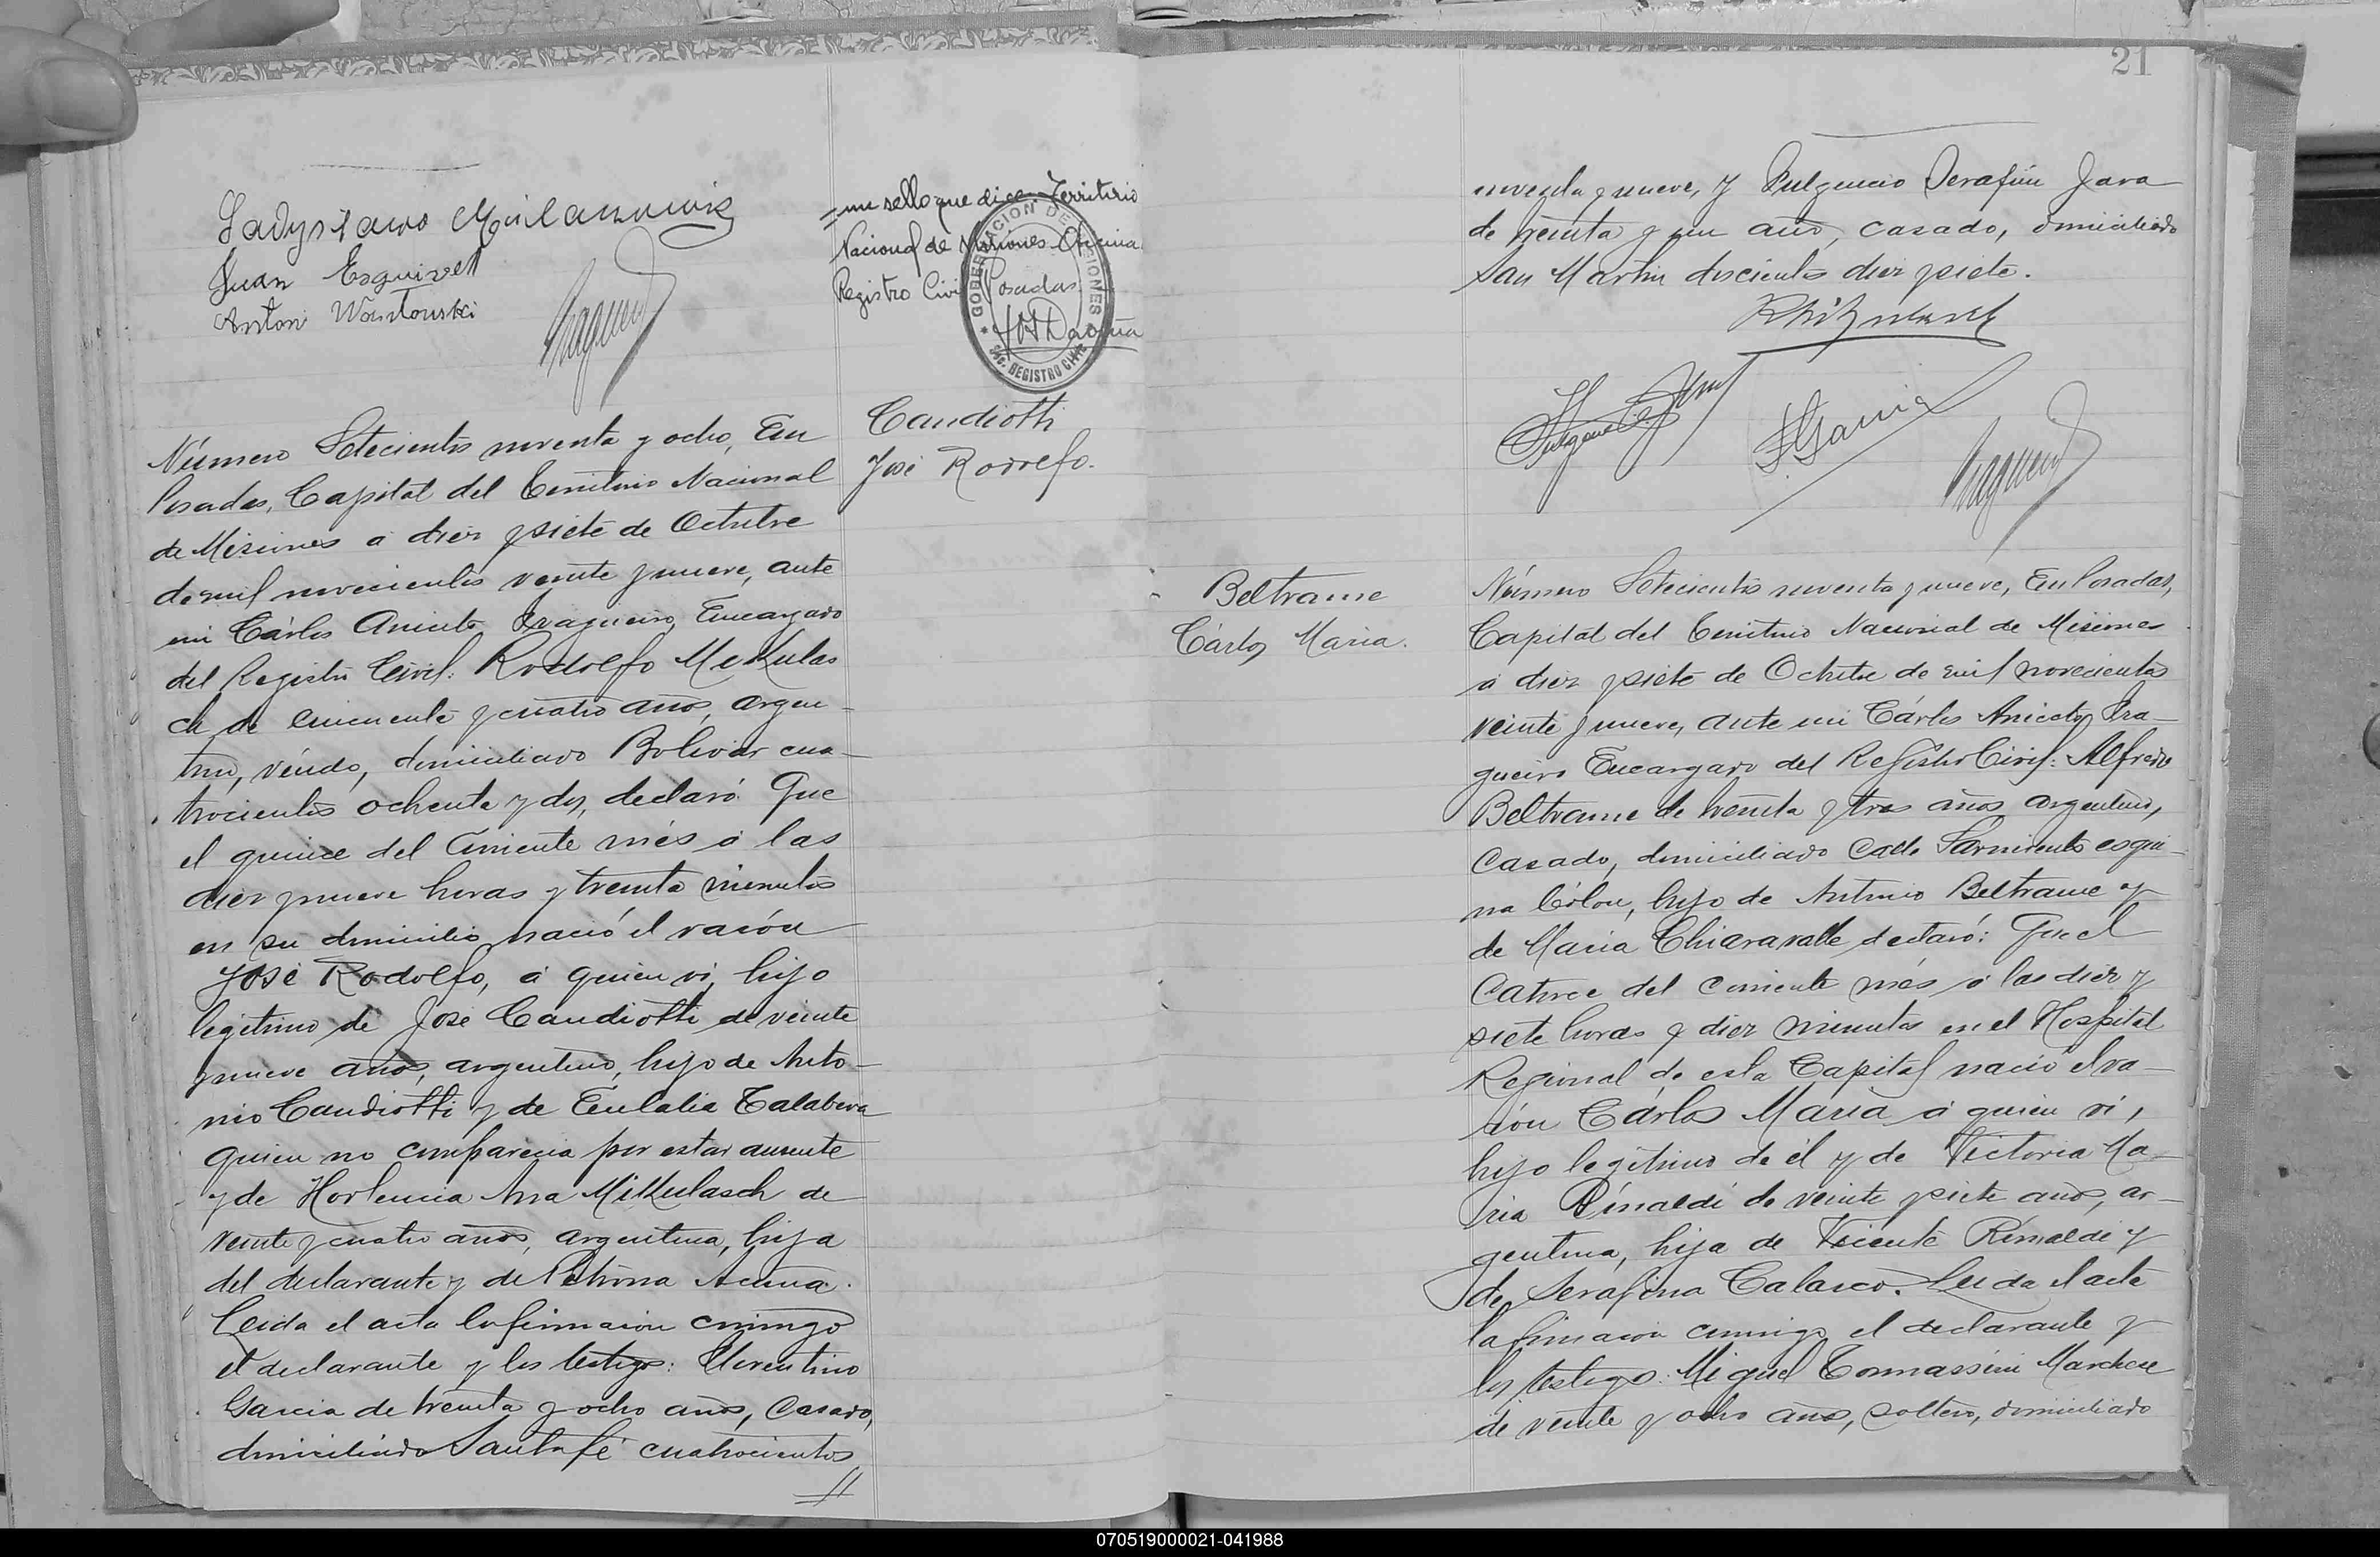 Juan Esquivel
Anton
un sello que dice: Territorio
Nacional de Misiones Oficina
Registro Civil Posadas
GOBERNACION DE MISIONES
REGISTRO CIVIL
Número Setecientos noventa y ocho, En
Posadas, Capital del Territorio Nacional
de Misiones á diez y siete de Octubre
de mil novecientos veinte y nueve, ante
mi Cárlos Aniceto Fragueiro, Encargado
del Registro Civil: Rodolfo Mikulas
ch de cincuenta y cuatro años, argen-
tino, viudo, domiciliado Bolivar cua-
trocientos ochenta y dos, declaró: Que
el quince del corriente més á las
diez y nueve horas y treinta minutos
en su domicilio nació el varón
José Rodolfo, á quien vi, hijo
legítimo de José Candiotti de veinte
y nueve años, argentino, hijo de Anto-
nio Candiotti y de Eulalia Talabera
quien no comparecia por estar ausente
y de Hortencia Ana Mikulasch de
veinte y cuatro años, argentina, hija
del declarante y de Petrona Acuña.
Leida el acta la firmaron conmigo
el declarante y los testigos: Florentino
Garcia de treinta y ocho años, Casado,
domiciliado Santa fé cuatrocientos
Candiotti
José Rodolfo.
21
noventa y nueve, y Fulgencio Serafin Jara
de treinta y un año, casado, domiciliado
San Martin doscientos diez y siete.
F Garcia
Beltrame
Cárlos Maria.
Número Setecientos noventa y nueve, En Posadas,
Capital del Territorio Nacional de Misiones
á diez y siete de Octubre de mil novecientos
veinte y nueve, ante mi Cárlos Aniceto Fra-
gueiro Encargado del Registro Civil: Alfredo
Beltrame de treinta y tres años argentino,
casado, domiciliado Calle Sarmiento esqui-
na Cólon, hijo de Antonio Beltrame y
de Maria Chiaravalle declaró: Que el
Catorce del corriente més á las diez y
siete horas y diez minutos en el Hospital
Regional de esta Capital nació el va-
rón Cárlos Maria á quien vi,
hijo legítimo de él y de Victoria Ma-
ria Rinaldi de veinte y siete años, ar-
gentina, hija de Vicente Rinaldi y
de Serafina Calasco. Leida el acta
la firmaron conmigo el declarante y
los testigos: Miguel Tomassini Marchese
de veinte y ocho años, soltero, domiciliado
070519000021-041988